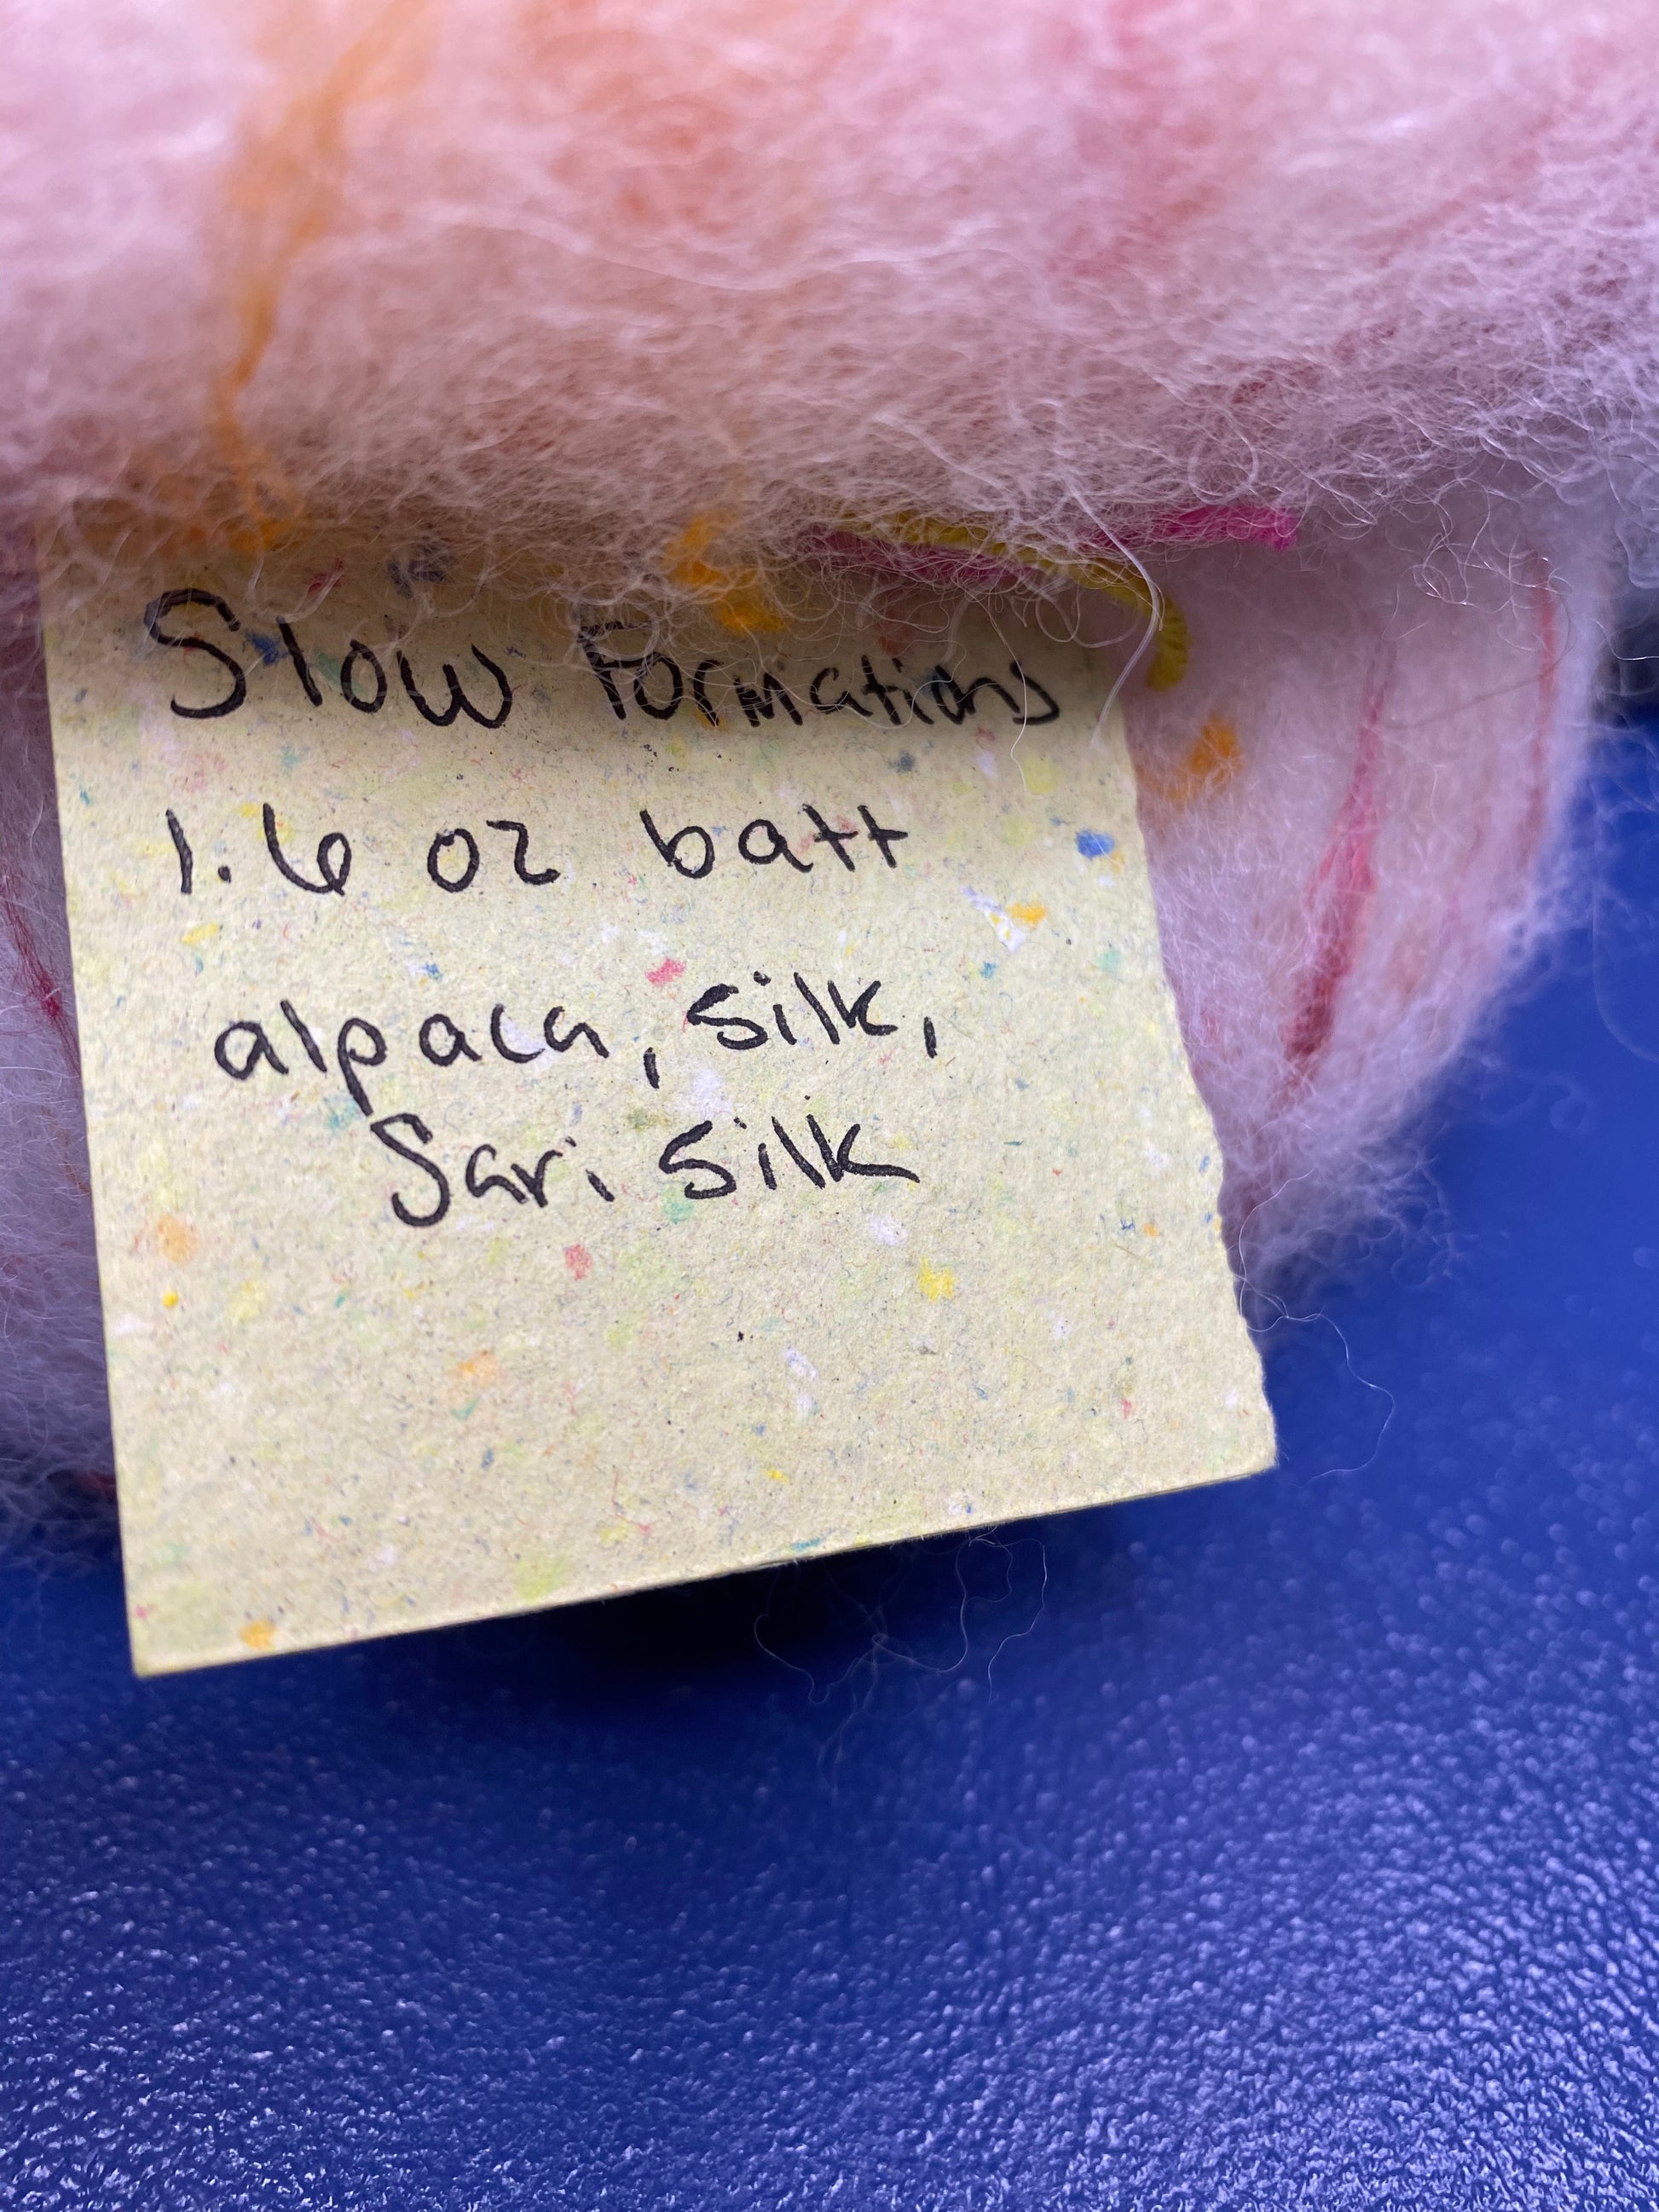 Slow Formations
1.6 oz batt
alpaca, silk,
Sari silk